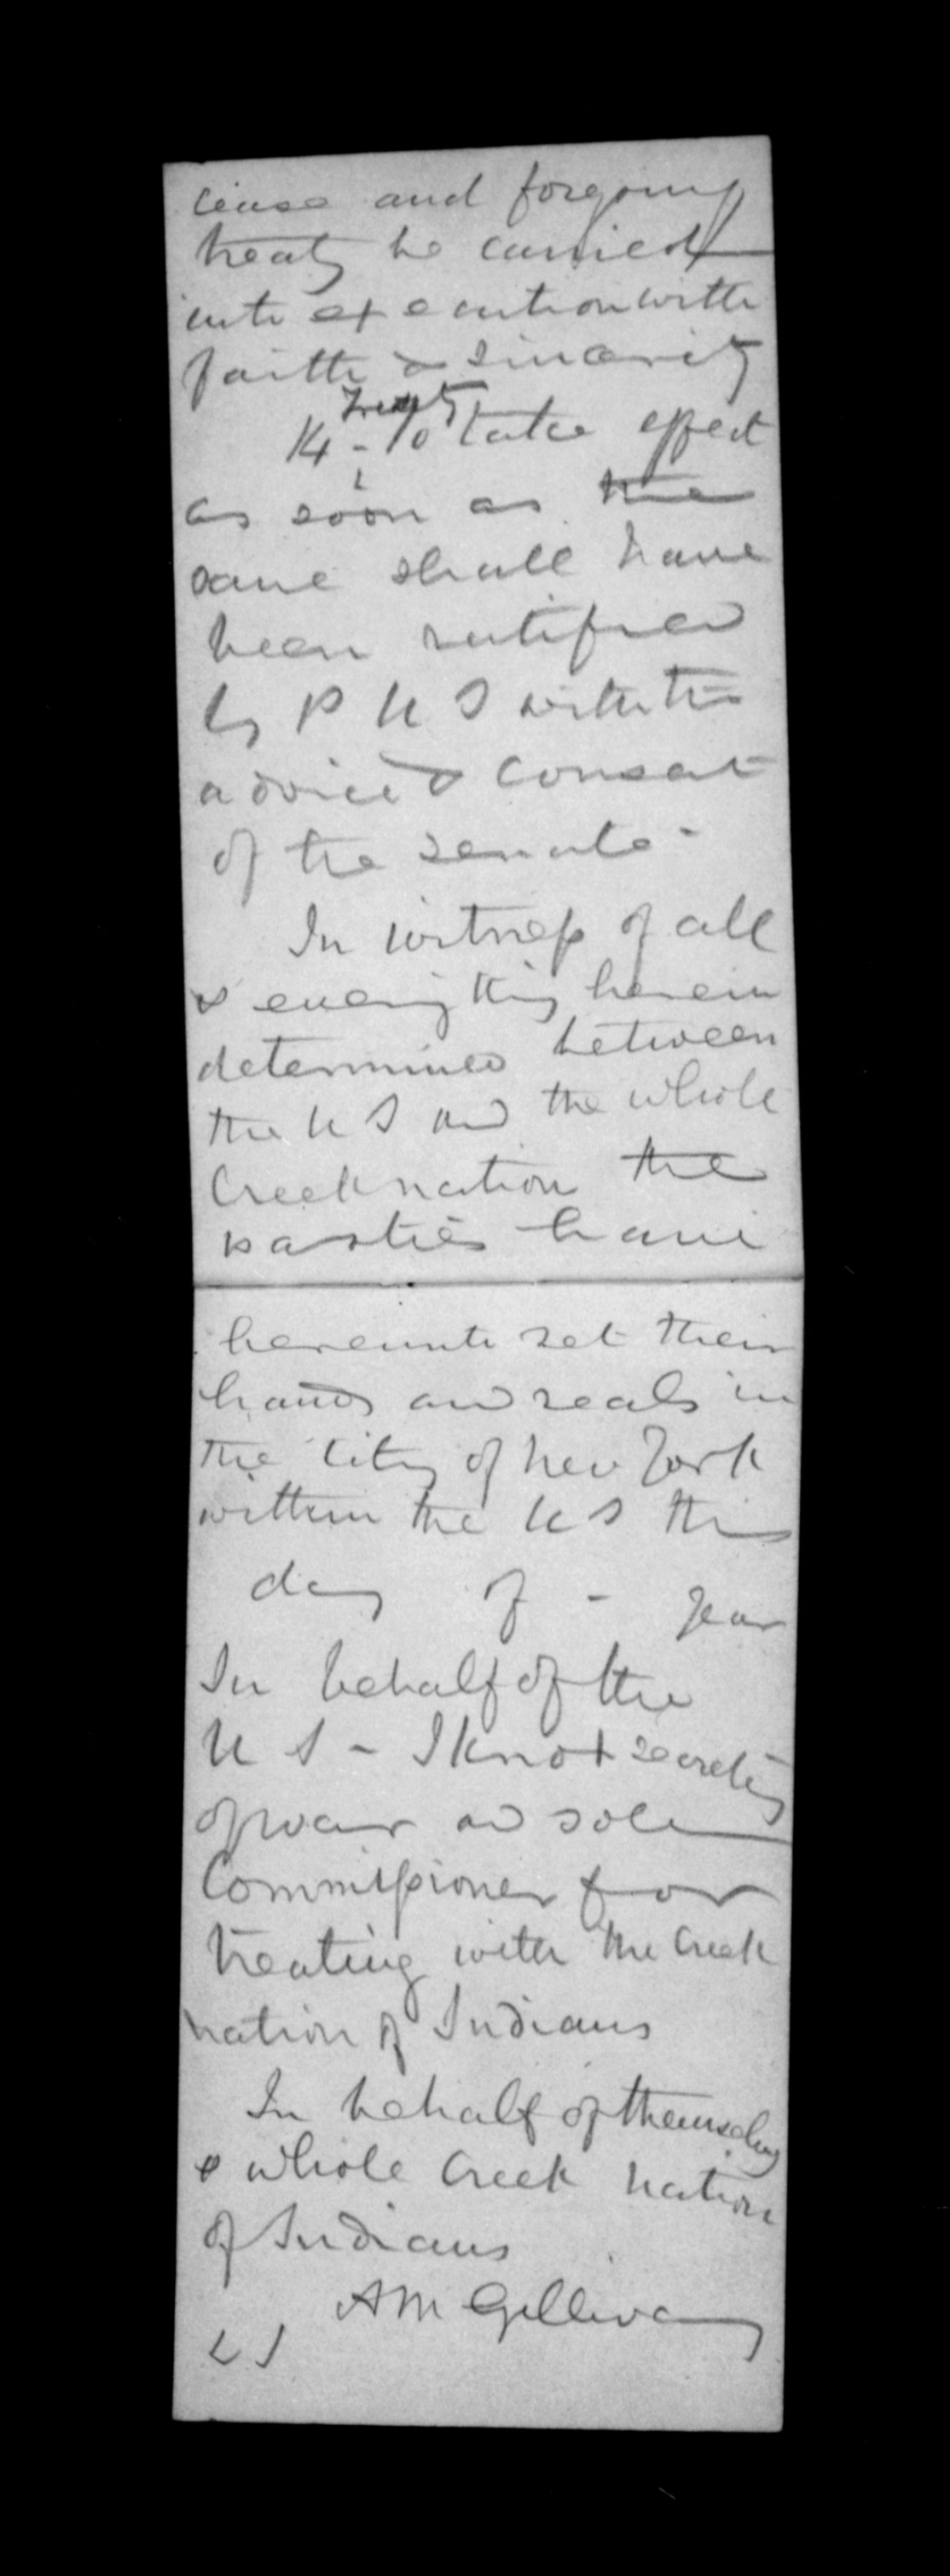 cease and forgoing
treaty be carried
into execution with
faith & sincerity
Treaty
14 - To take effect
as soon as the
same shall have
been ratified
by P U S with the
advice & consent
of the senate -
In witness of all
& every thing herein
determined between
the U S and the whole
Creek nation the
parties have
hereunto set their
hands and seals in
the City of New York
within the U S this
day of - year
In behalf of the
U S - J Knox secretary
of war and sole
Commissioner for
treating with the Creek
nation of Indians
In behalf of themselves
& whole Creek nation
of Indians
A M Gillivray
L S